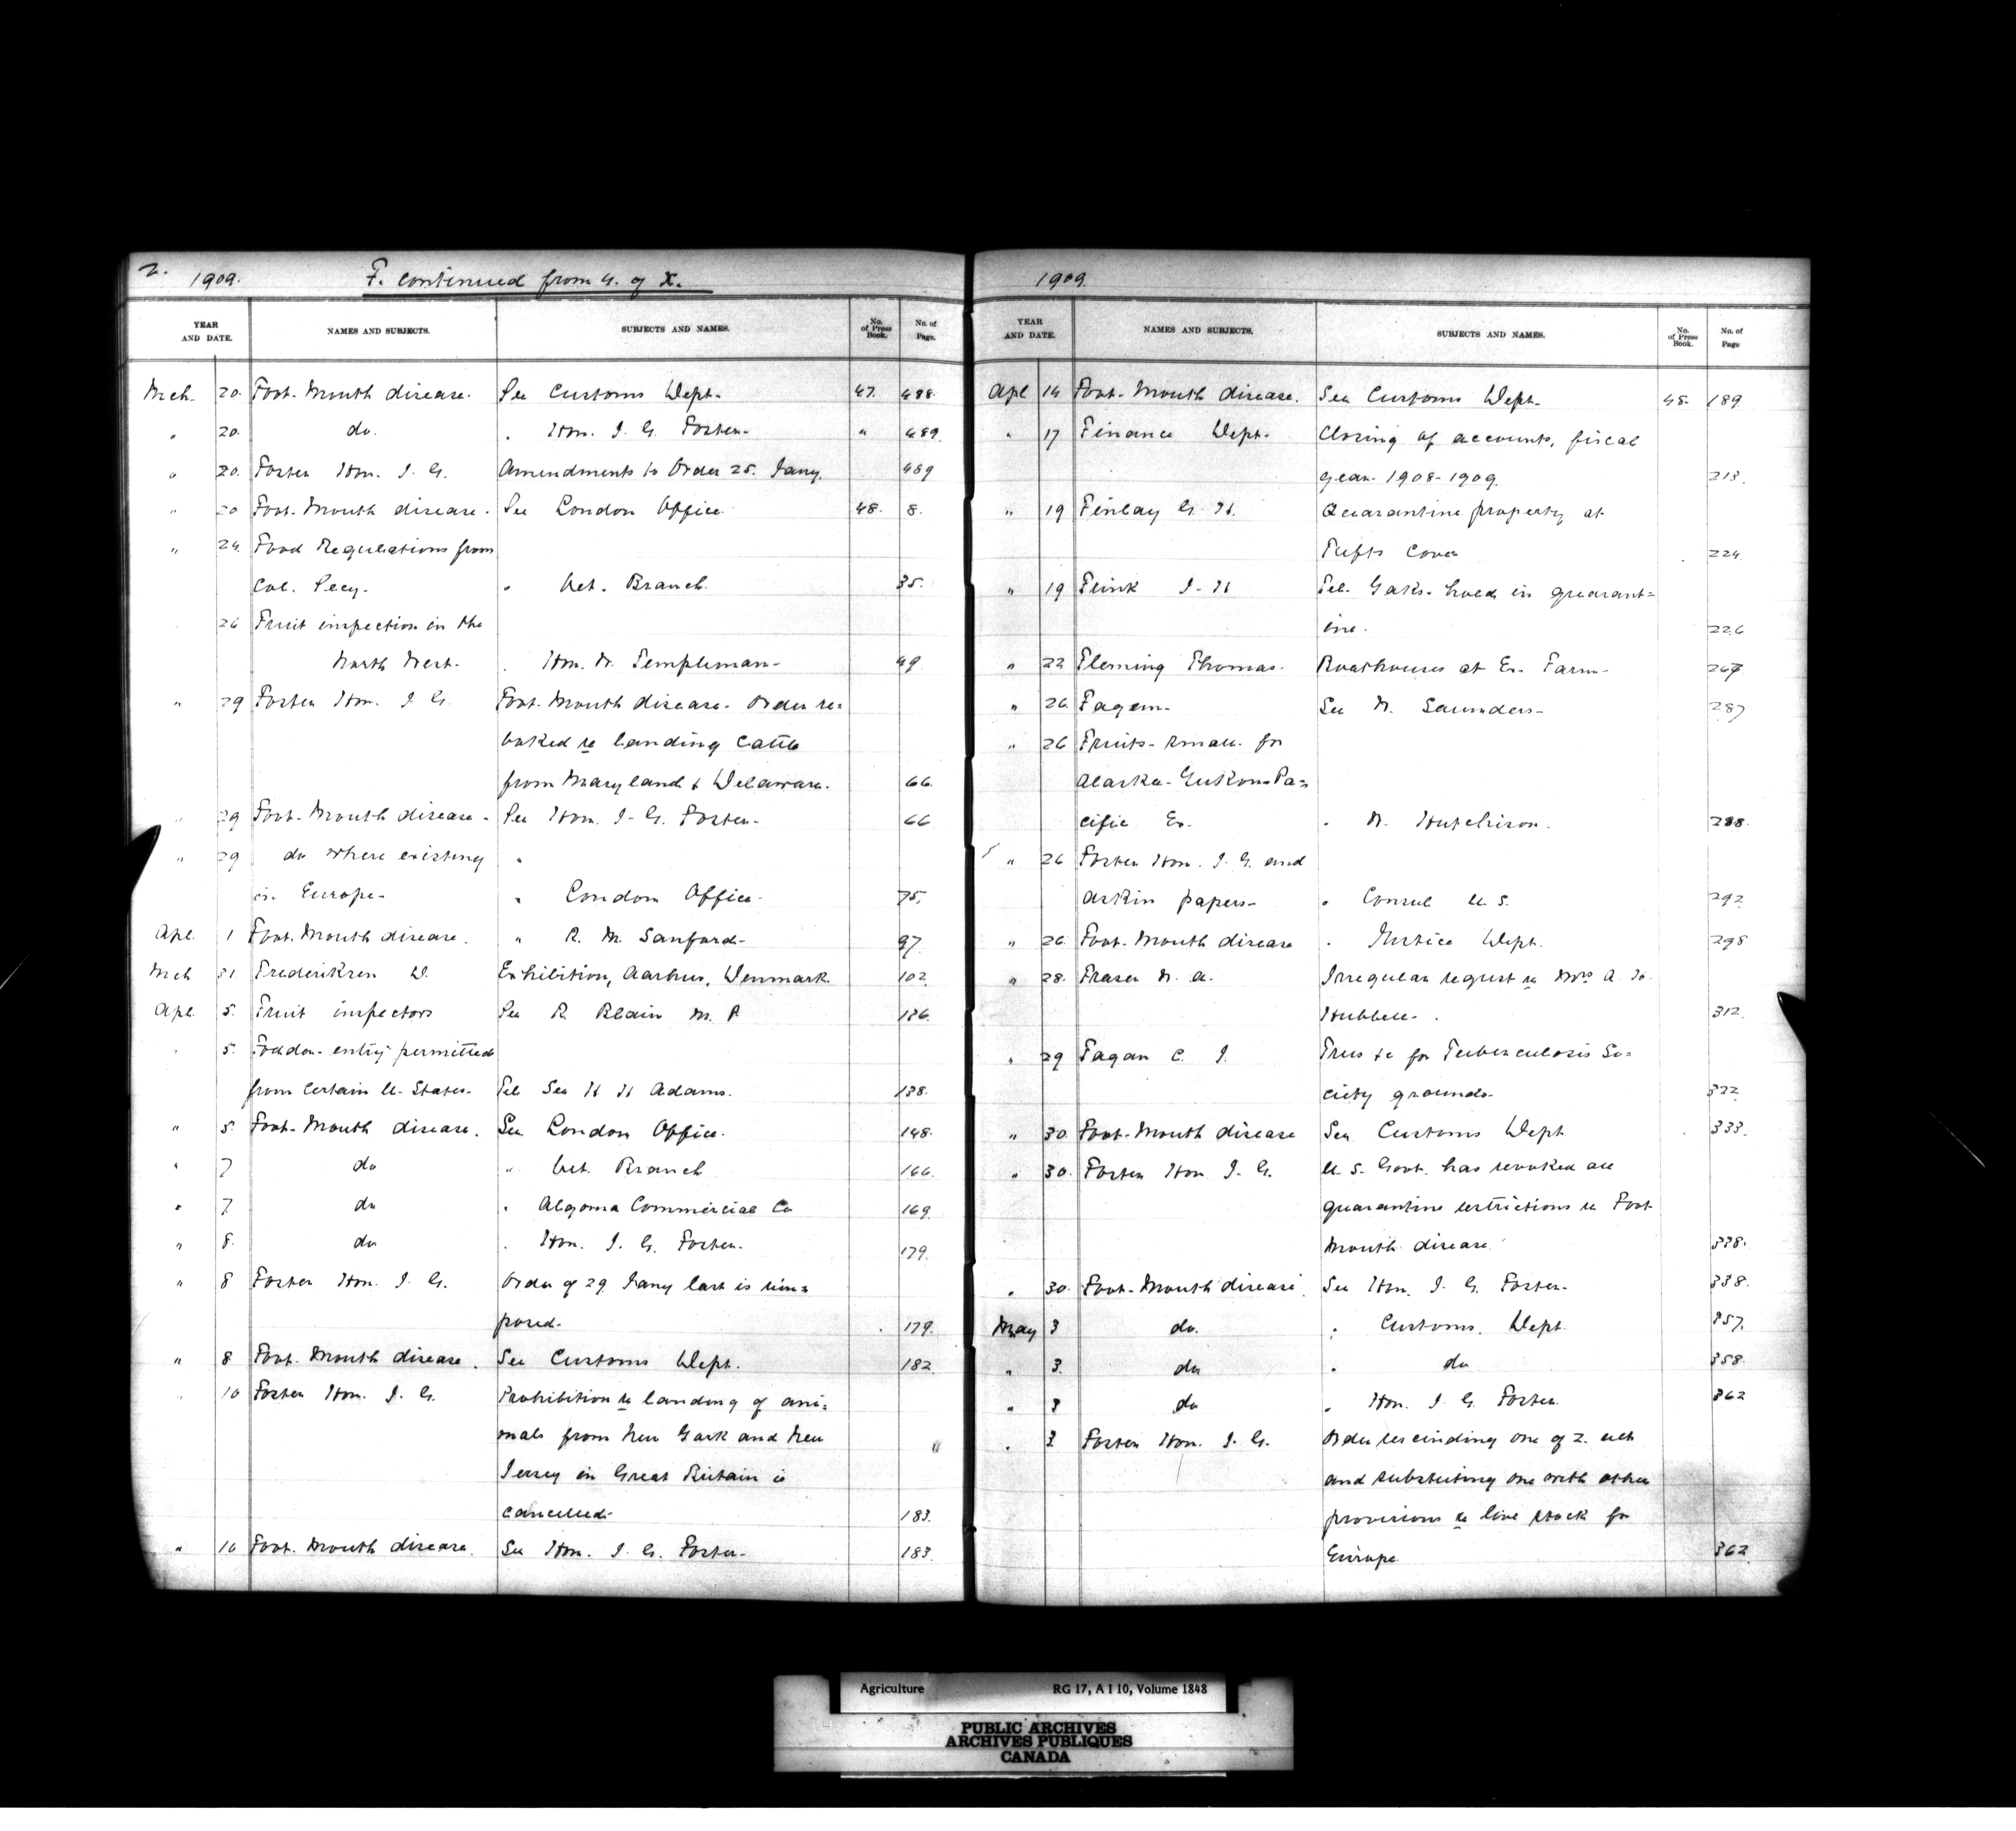 2. 1909. F. continued from 4. of X.
YEAR AND DATE. NAMES AND SUBJECTS. SUBJECTS AND NAMES. No. of Press Book. No. of Page.
Mch. 20. Foot-Mouth disease. See Customs Dept. 47. 488.
" 20. do. " Hon. J. G. Foster. " 489.
" 20. Foster Hon. J. G. Amendments to Order 25. Jany. 489
" 20 Foot-Mouth disease. See London Office. 48. 8.
" 24. Food Regulations from
Col. Secy. " Vet. Branch. 35.
26 Fruit inspection in the
North West. " Hon. W. Templeman. 49.
" 29 Foster Hon. J. G. Foot-Mouth disease. Order re=
voked re landing cattle
from Maryland & Delaware. 66.
" 29 Foot-Mouth disease. See Hon. J. G. Foster. 66
" 29 do where existing "
in Europe. " London Office. 75.
Apl. 1 Foot-Mouth disease. " R. M. Sanford. 97.
Mch 31 Frederiksen D. Exhibition, Aarhus, Denmark. 102.
Apl. 5. Fruit inspectors See R. Blain M. P. 136.
" 5. Fodder. entry permitted
from certain U. States. Tel See H H Adams. 138.
" 5. Foot-Mouth disease. See London Office. 148.
" 7 do " Vet. Branch 166.
" 7. do " Algoma Commercial Co 169.
" 8. do " Hon. J. G. Foster. 179.
" 8 Foster Hon. J. G. Order of 29 Jany last is
posed. 179.
" 8 Foot-Mouth disease. See Customs Dept. 182.
" 10 Foster Hon. J. G. Prohibition re landing of ani=
mals from New York and New
Jersey in Great Britain is
cancelled. 183.
" 10 Foot-Mouth disease. See Hon. J. G. Foster. 183.
1909.
YEAR AND DATE. NAMES AND SUBJECTS. SUBJECTS AND NAMES. No. of Press Book. No. of Page
Apl 14 Foot-Mouth disease. See Customs Dept. 48. 189
" 17 Finance Dept. Closing of accounts, fiscal
year 1908-1909. 213.
" 19 Finlay G. H. Quarantine property at
Tufts Cove 224.
" 19 Flink J. H Tel. held in quarant=
ine. 226
" 22 Fleming Thomas. Boathouses at Ex. Farm. 267
" 26. Fagem. See W. Saunders. 287
" 26 Fruits-small for
Alaska-Yukon-Pa=
cific Ex. " W. Hutchison. 288.
" 26 Foster Hon. J. G. and
Askin papers. " Consul U. S. 292
" 26. Foot-Mouth disease " Justice Dept. 298
" 28. Fraser W. A. Irregular request re Mrs A. H.
Hubbell. 312.
" 29 Fagan C. J. Trustee for Tuberculosis So=
ciety grounds. 322
" 30. Foot-Mouth disease See Customs Dept 333.
" 30. Foster Hon J. G. U. S. Govt. has revoked all
quarantine restrictions re Foot
Mouth disease. 338.
" 30. Foot-Mouth disease. See Hon. J. G. Foster. 338.
May 3 do. " Customs. Dept. 357.
" 3. do " do 358.
" 3 do " Hon. J. G. Foster. 362
" 3 Foster Hon. J. G. Order rescinding one of 2.
and substituting one with other
provisions re live stock for
Europe. 362.
Agriculture RG 17, A I 10, Volume 1848
PUBLIC ARCHIVES
ARCHIVES PUBLIQUES
CANADA